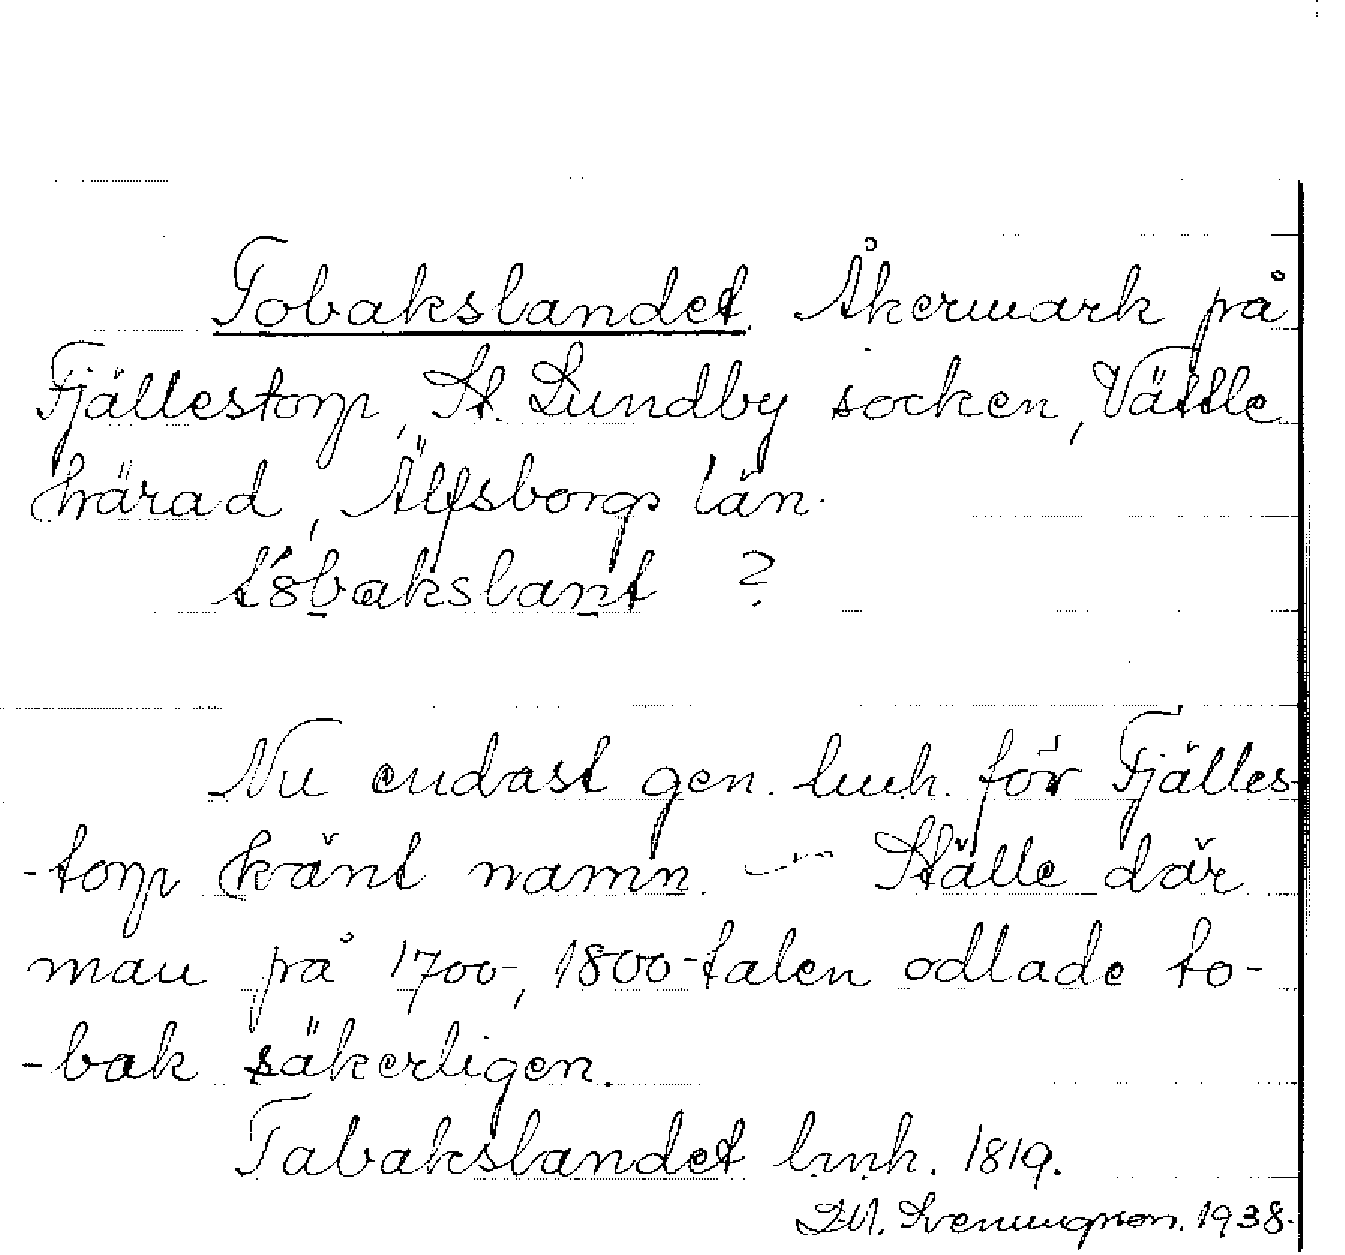 Tobakslandet. Åkermark på
Fjällestorp, St. Lundby socken, Vättle
härad, Älfsborgs län.
Nu endast gen. lmh. för Fjälles-
-torp känt namn. — Ställe där
man på 1700-, 1800-talen odlade to-
-bak säkerligen.
Tabakslandet lmh. 1819.
1938.